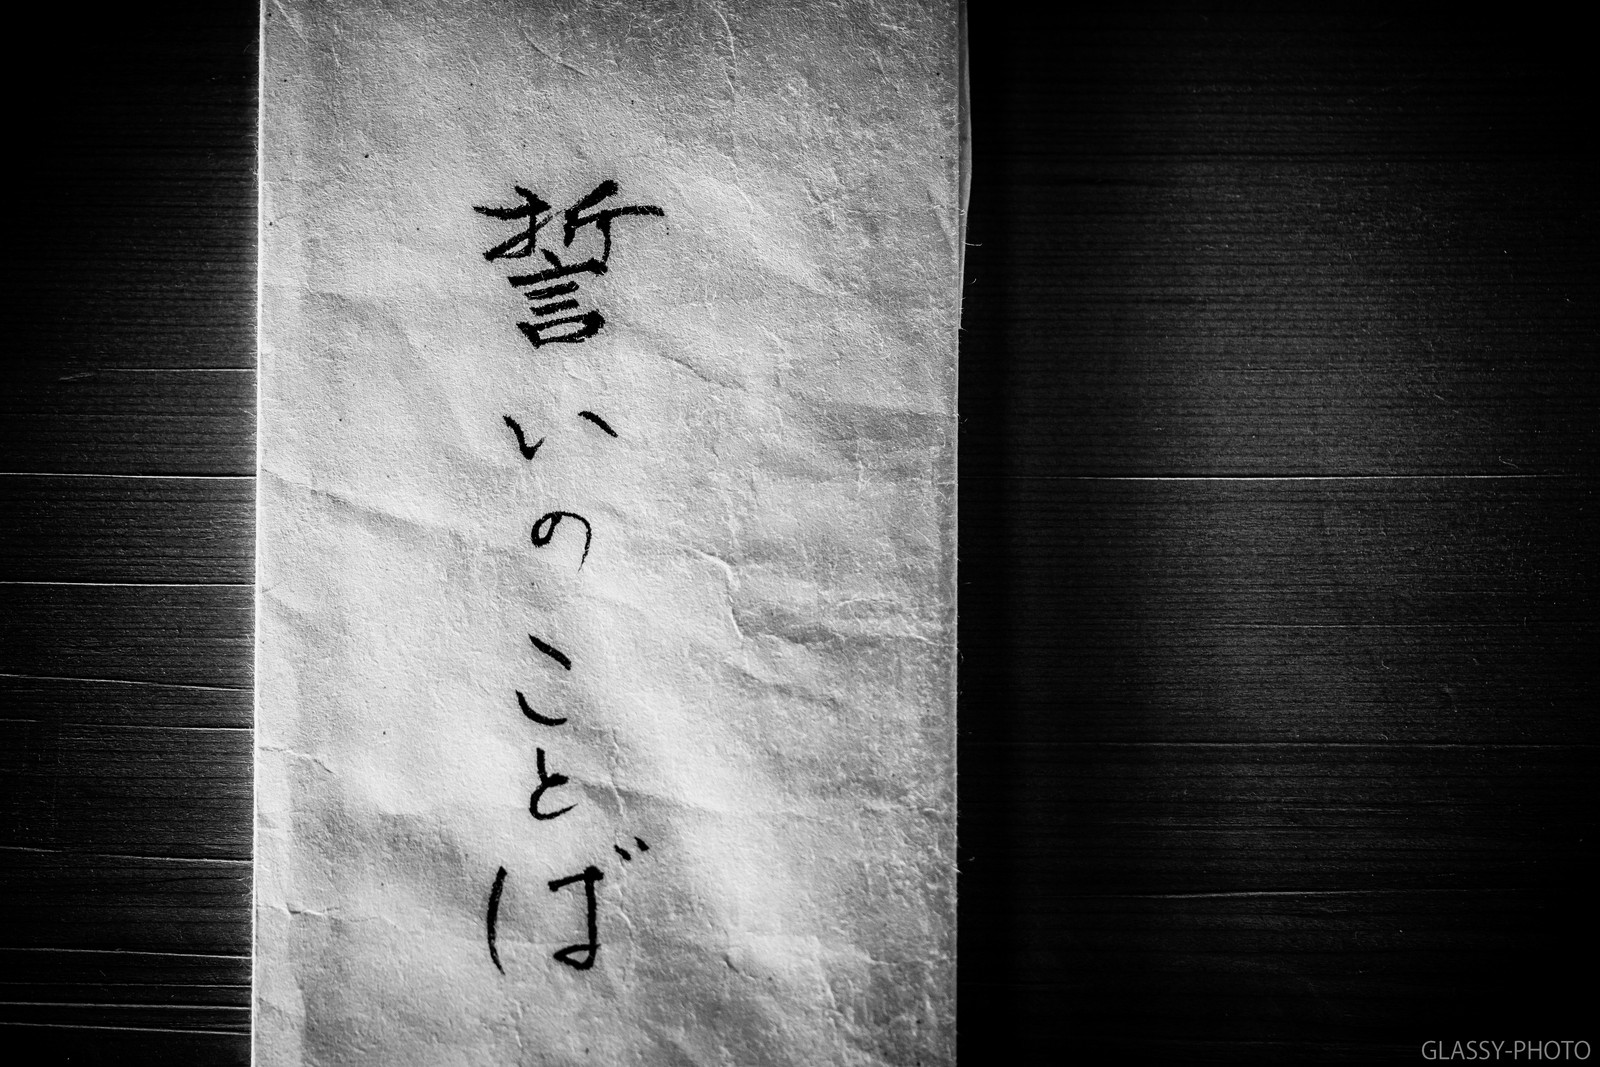 誓いのことば
GLASSY-PHOTO